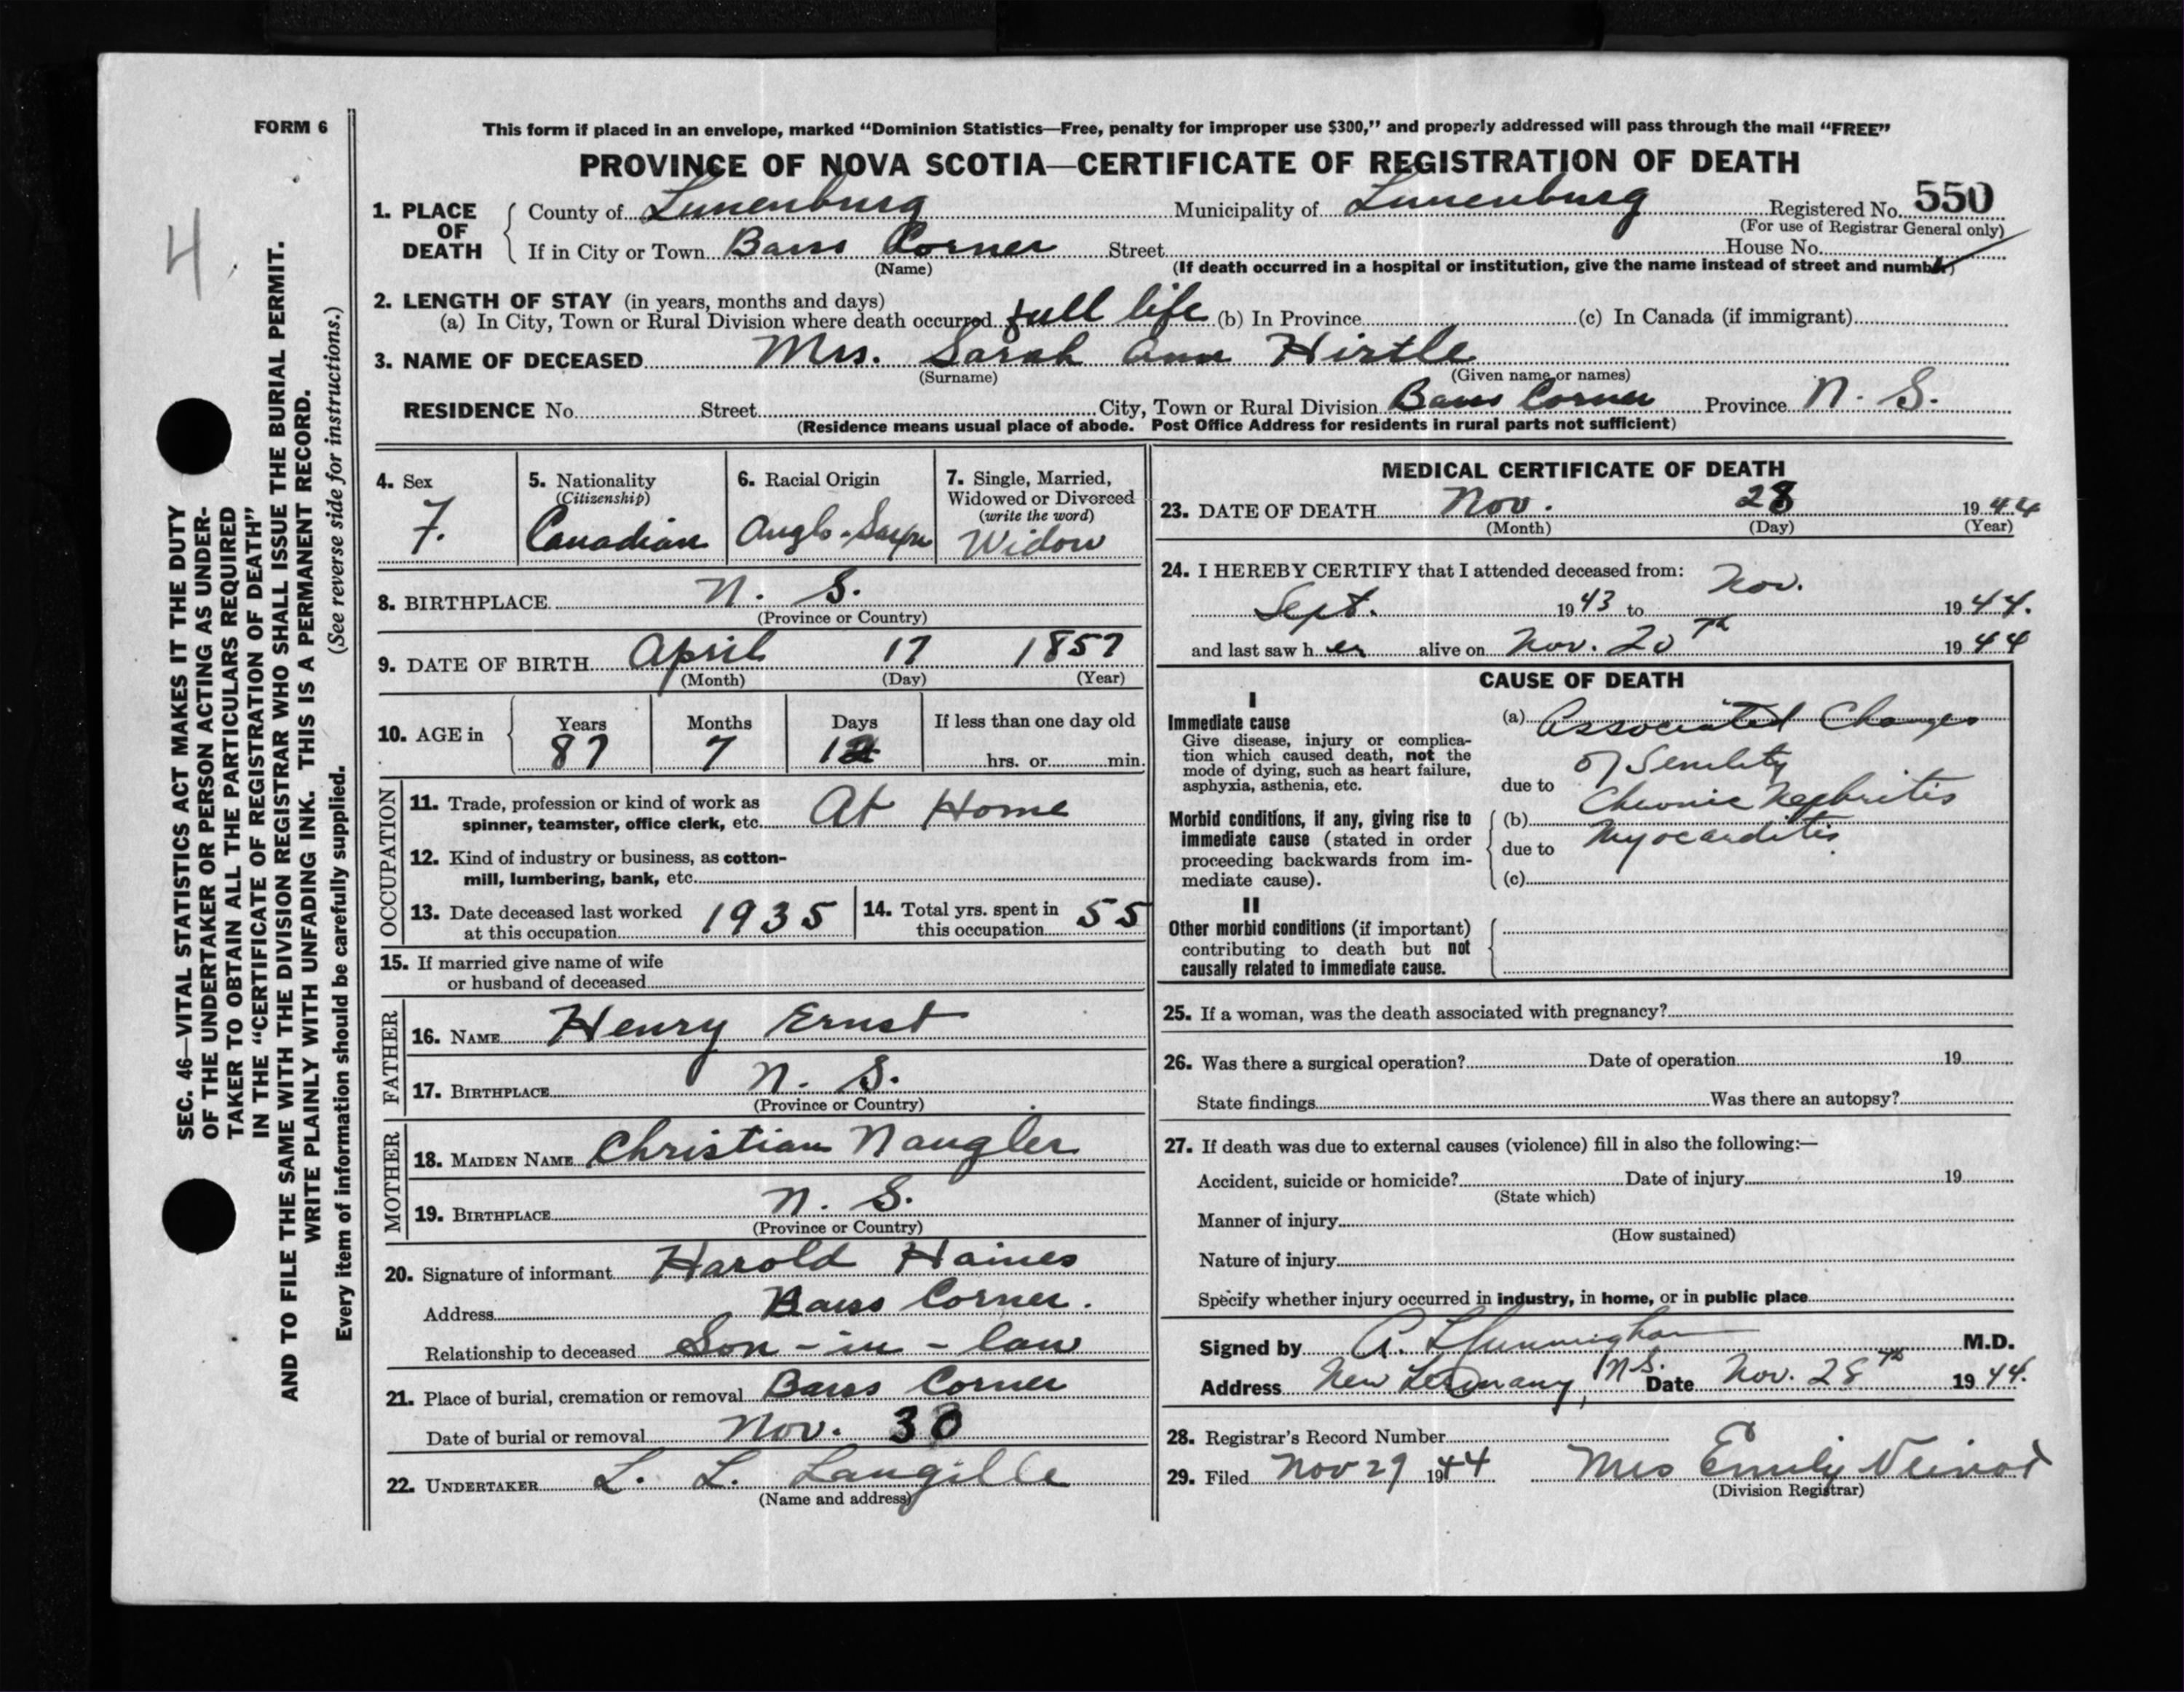 FORM 6
4
This form if placed in an envelope, marked "Dominion Statistics—Free, penalty for improper use $300," and properly addressed will pass through the mail "FREE"
PROVINCE OF NOVA SCOTIA—CERTIFICATE OF REGISTRATION OF DEATH
1. PLACE OF DEATH
County of Lunenburg Municipality of Lunenburg Registered No. 550
(For use of Registrar General only)
If in City or Town Barss Corner Street House No.
(Name) (If death occurred in a hospital or institution, give the name instead of street and number)
2. LENGTH OF STAY (in years, months and days)
(a) In City, Town or Rural Division where death occurred full life (b) In Province (c) In Canada (if immigrant)
3. NAME OF DECEASED Mrs. Sarah Ann Hirtle
(Surname) (Given name or names)
RESIDENCE No. Street City, Town or Rural Division Barss Corner Province N. S.
(Residence means usual place of abode. Post Office Address for residents in rural parts not sufficient)
4. Sex
F.
5. Nationality
(Citizenship)
Canadian
6. Racial Origin
Anglo-Saxon
7. Single, Married,
Widowed or Divorced
(write the word)
Widow
8. BIRTHPLACE N. S.
(Province or Country)
9. DATE OF BIRTH April 17 1857
(Month) (Day) (Year)
10. AGE in
Years Months Days If less than one day old
87 7 12 hrs. or min.
OCCUPATION
11. Trade, profession or kind of work as
spinner, teamster, office clerk, etc. At Home
12. Kind of industry or business, as cotton-
mill, lumbering, bank, etc.
13. Date deceased last worked
at this occupation 1935
14. Total yrs. spent in
this occupation 55
15. If married give name of wife
or husband of deceased
FATHER
16. NAME Henry Ernst
17. BIRTHPLACE N. S.
(Province or Country)
MOTHER
18. MAIDEN NAME Christian Naugler
19. BIRTHPLACE N. S.
(Province or Country)
20. Signature of informant Harold Haines
Address Barss Corner.
Relationship to deceased Son-in-law
21. Place of burial, cremation or removal Barss Corner
Date of burial or removal Nov. 30
22. UNDERTAKER L. L. Langille
(Name and address)
MEDICAL CERTIFICATE OF DEATH
23. DATE OF DEATH Nov. 28 1944
(Month) (Day) (Year)
24. I HEREBY CERTIFY that I attended deceased from:
Sept. 1943 to Nov. 1944.
and last saw her alive on Nov. 20th 1944
CAUSE OF DEATH
I
Immediate cause
Give disease, injury or complica-
tion which caused death, not the
mode of dying, such as heart failure,
asphyxia, asthenia, etc.
(a) Associated Changes
of Senility
due to
Chronic Nephritis
Morbid conditions, if any, giving rise to
immediate cause (stated in order
proceeding backwards from im-
mediate cause).
(b)
Myocarditis
due to
(c)
II
Other morbid conditions (if important)
contributing to death but not
causally related to immediate cause.
25. If a woman, was the death associated with pregnancy?
26. Was there a surgical operation? Date of operation 19
State findings Was there an autopsy?
27. If death was due to external causes (violence) fill in also the following:—
Accident, suicide or homicide? Date of injury 19
(State which)
Manner of injury
(How sustained)
Nature of injury
Specify whether injury occurred in industry, in home, or in public place
Signed by M.D.
Address New Germany, N.S. Date Nov. 28th 1944.
28. Registrar's Record Number
29. Filed Nov 29 1944 Mrs Emily
(Division Registrar)
SEC. 46—VITAL STATISTICS ACT MAKES IT THE DUTY
OF THE UNDERTAKER OR PERSON ACTING AS UNDER-
TAKER TO OBTAIN ALL THE PARTICULARS REQUIRED
IN THE "CERTIFICATE OF REGISTRATION OF DEATH"
AND TO FILE THE SAME WITH THE DIVISION REGISTRAR WHO SHALL ISSUE THE BURIAL PERMIT.
WRITE PLAINLY WITH UNFADING INK. THIS IS A PERMANENT RECORD.
Every item of information should be carefully supplied. (See reverse side for instructions.)